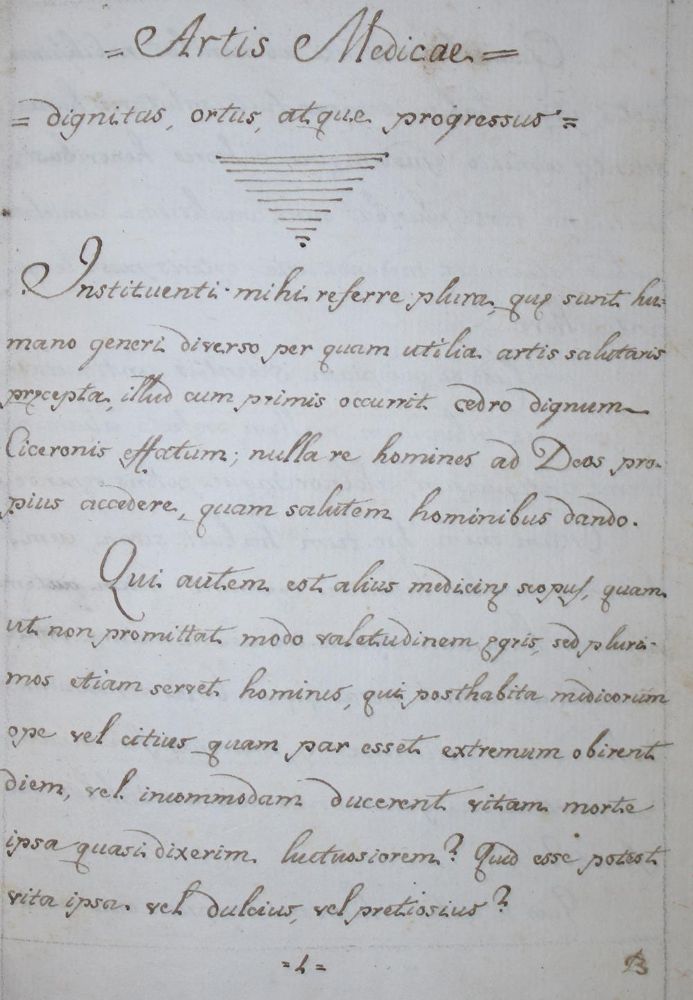 = Artis Medicae =
= dignitas, ortus, atque progressus =
Instituenti mihi referre plura, quę sunt hu-
mano generi diverso per quam utilia artis salutaris
pręcepta, illud cum primis occurrit cedro dignum
Ciceronis effatum; nulla re homines ad Deos pro-
pius accedere, quam salutem hominibus dando.
Qui autem est alius medicinę scopus, quam
ut non promittat modo valetudinem ęgris, sed pluri-
mos etiam servet hominus, qui posthabita medicorum
ope vel citius quam par esset extremum obirent
diem, vel incommodam ducerent vitam morte
ipsa quasi dixerim luctuosiorem? Quid esse potest
vita ipsa vel dulcius, vel pretiosius?